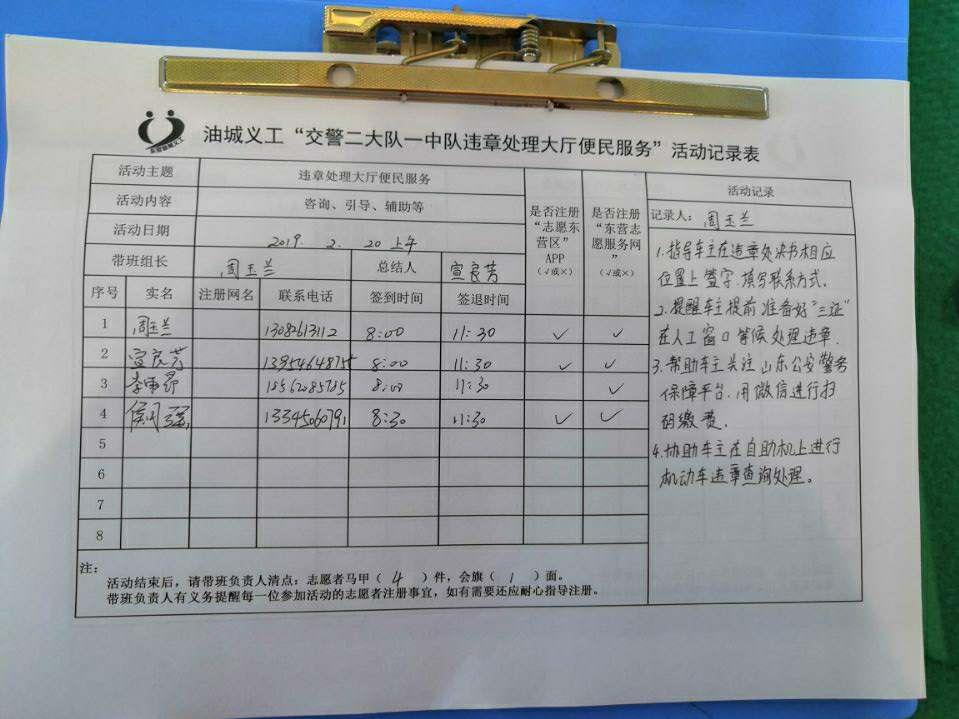 油城义工“交警二大队一中队违章处理大厅便民服务”活动记录表
活动主题 违章处理大厅便民服务
活动内容 咨询、引导、辅助等
活动日期 2019. 2. 20 上午
带班组长 周玉兰 总结人 宣良芳
是否注册“志愿东营区”APP（√或×）
是否注册“东营志愿服务网”（√或×）
序号 实名 注册网名 联系电话 签到时间 签退时间
1 周玉兰 13082613112 8:00 11:30 ✓ ✓
2 宣良芳 13954648715 8:00 11:30 ✓ ✓
3 8:00 11:30 ✓
4 13345060791 8:30 11:30 ✓ ✓
5
6
7
8
注：
活动结束后，请带班负责人清点：志愿者马甲（ 4 ）件，会旗（ 1 ）面。
带班负责人有义务提醒每一位参加活动的志愿者注册事宜，如有需要还应耐心指导注册。
活动记录
记录人： 周玉兰
1.指导车主在违章处决书相应
位置上签字.填写联系方式.
2.提醒车主提前准备好“三证”
在人工窗口等候处理违章.
3.帮助车主关注山东公安警务
保障平台.用微信进行扫
码缴费.
4.协助车主在自助机上进行
机动车违章查询处理。